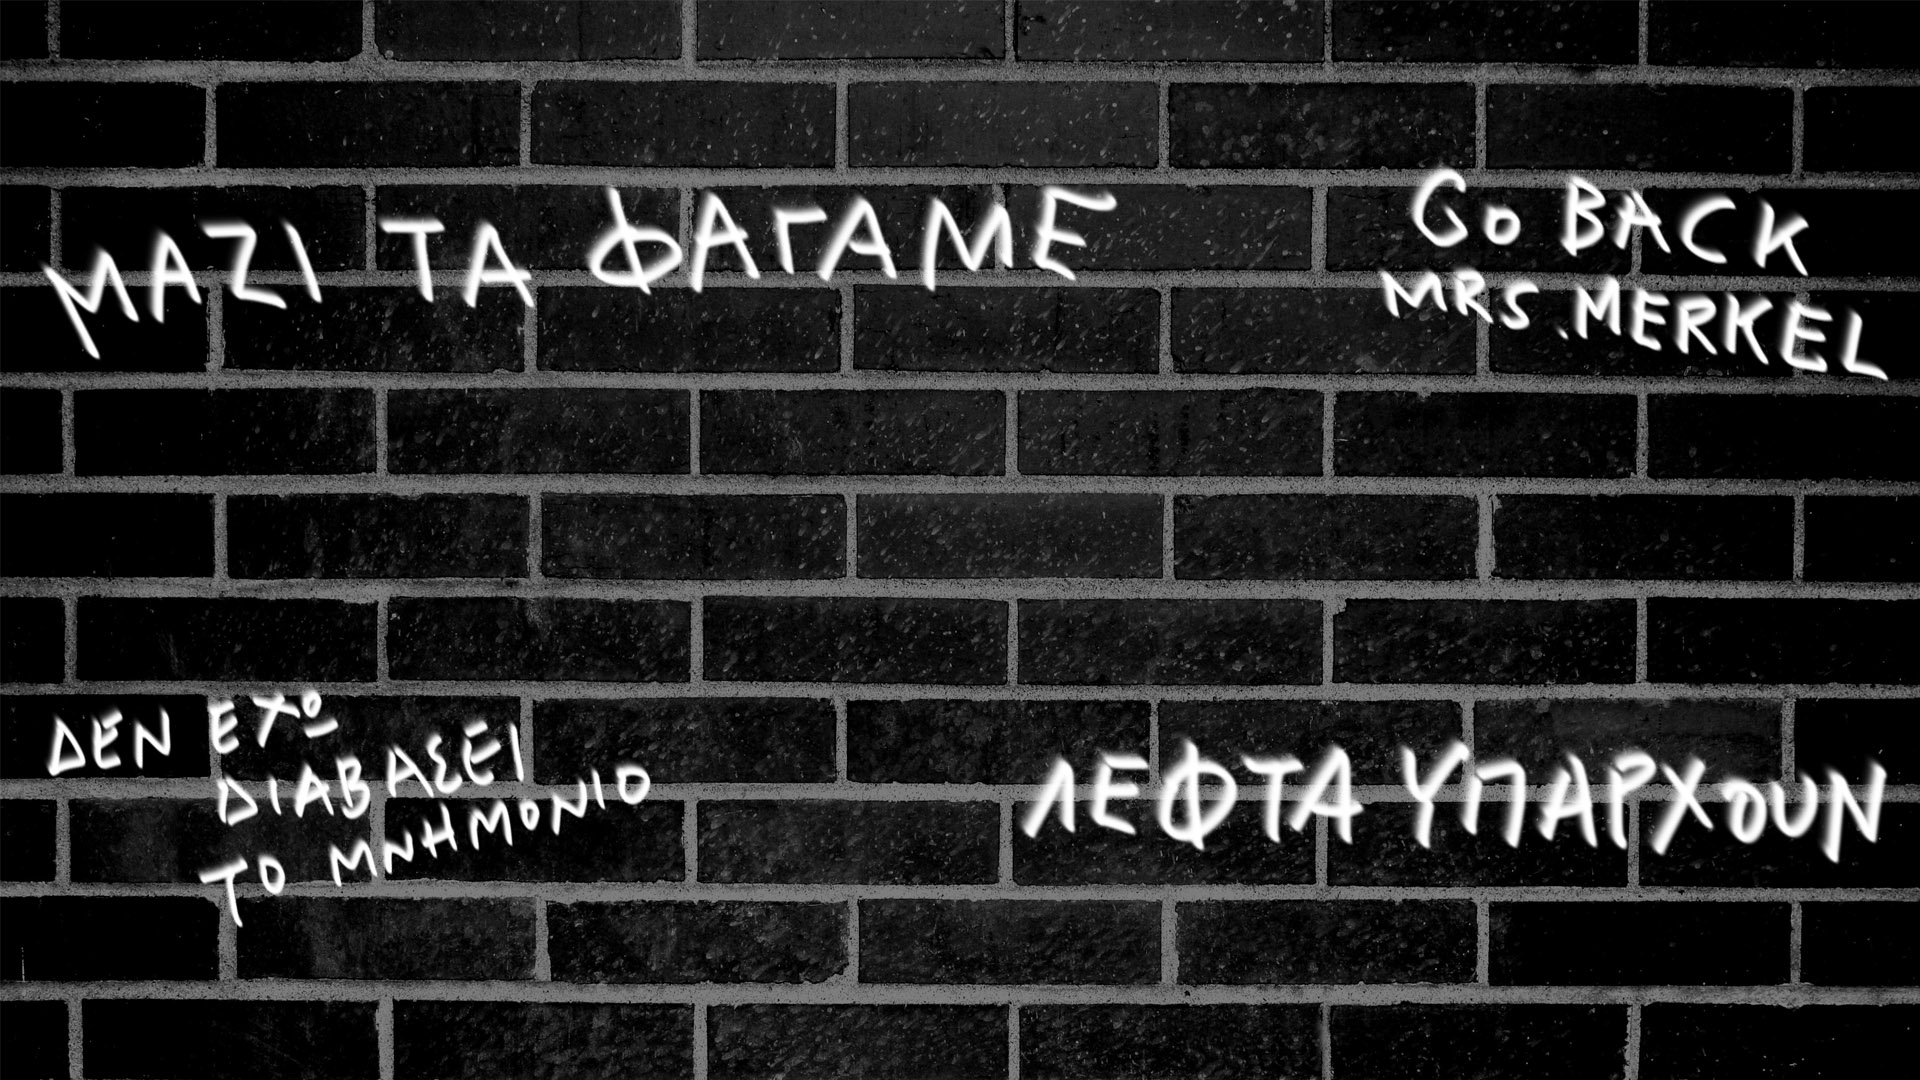 ΜΑΖΙ ΤΑ ΦΑΓΑΜΕ
GO BACK
MRS. MERKEL
ΔΕΝ ΕΧΩ
ΔΙΑΒΑΣΕΙ
ΤΟ ΜΝΗΜΟΝΙΟ
ΛΕΦΤΑ ΥΠΑΡΧΟΥΝ